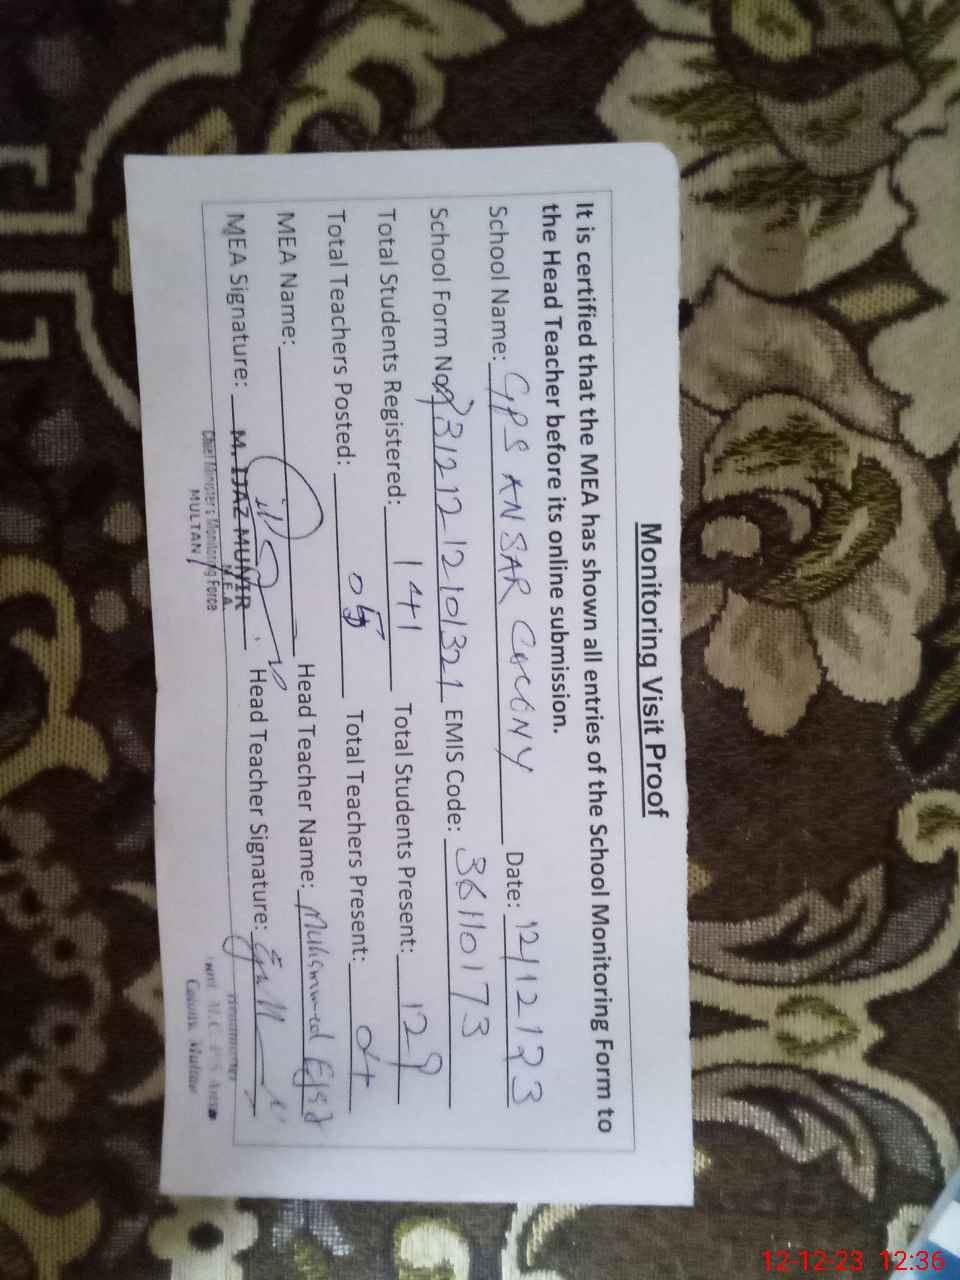 Monitoring Visit Proof
It is certified that the MEA has shown all entries of the School Monitoring Form to
the Head Teacher before its online submission.
School Name: GPS ANSAR COLONY Date: 12/12/23
School Form No: EMIS Code: 36110173
Total Students Registered: 141 Total Students Present: 129
Total Teachers Posted: 05 Total Teachers Present: 04
MEA Name: Head Teacher Name: Muhammad Ejaz
MEA Signature: M. IJAZ MUNIR Head Teacher Signature:
M.E.A
Chief Minister's Monitoring Force
MULTAN
12-12-23 12:36